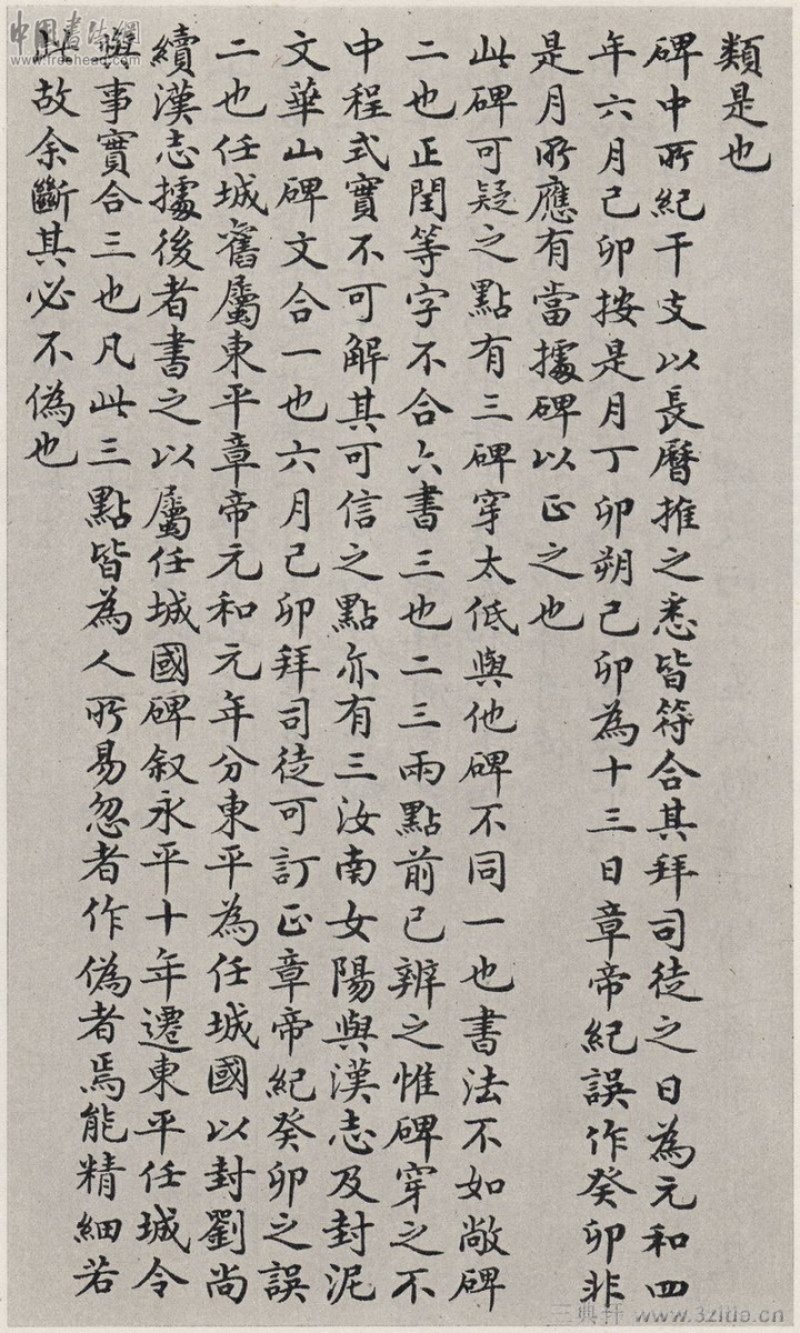 類是也
碑中所紀干支以長曆推之悉皆符合其拜司徒之日為元和四
年六月己卯按是月丁卯朔己卯為十三日章帝紀誤作癸卯非
是月所應有當據碑以正之也
此碑可疑之點有三碑穿太低與他碑不同一也書法不如敞碑
二也正閏等字不合六書三也二三兩點前已辨之惟碑穿之不
中程式實不可解其可信之點亦有三汝南女陽與漢志及封泥
文華山碑文合一也六月己卯拜司徒可訂正章帝紀癸卯之誤
二也任城舊屬東平章帝元和元年分東平為任城國以封劉尚
續漢志據後者書之以屬任城國碑叙永平十年遷東平任城令
與事實合三也凡此三點皆為人所易忽者作偽者焉能精細若
此故余斷其必不偽也
中国书法網
www.freehead.com
三典轩 www.3zitie.cn